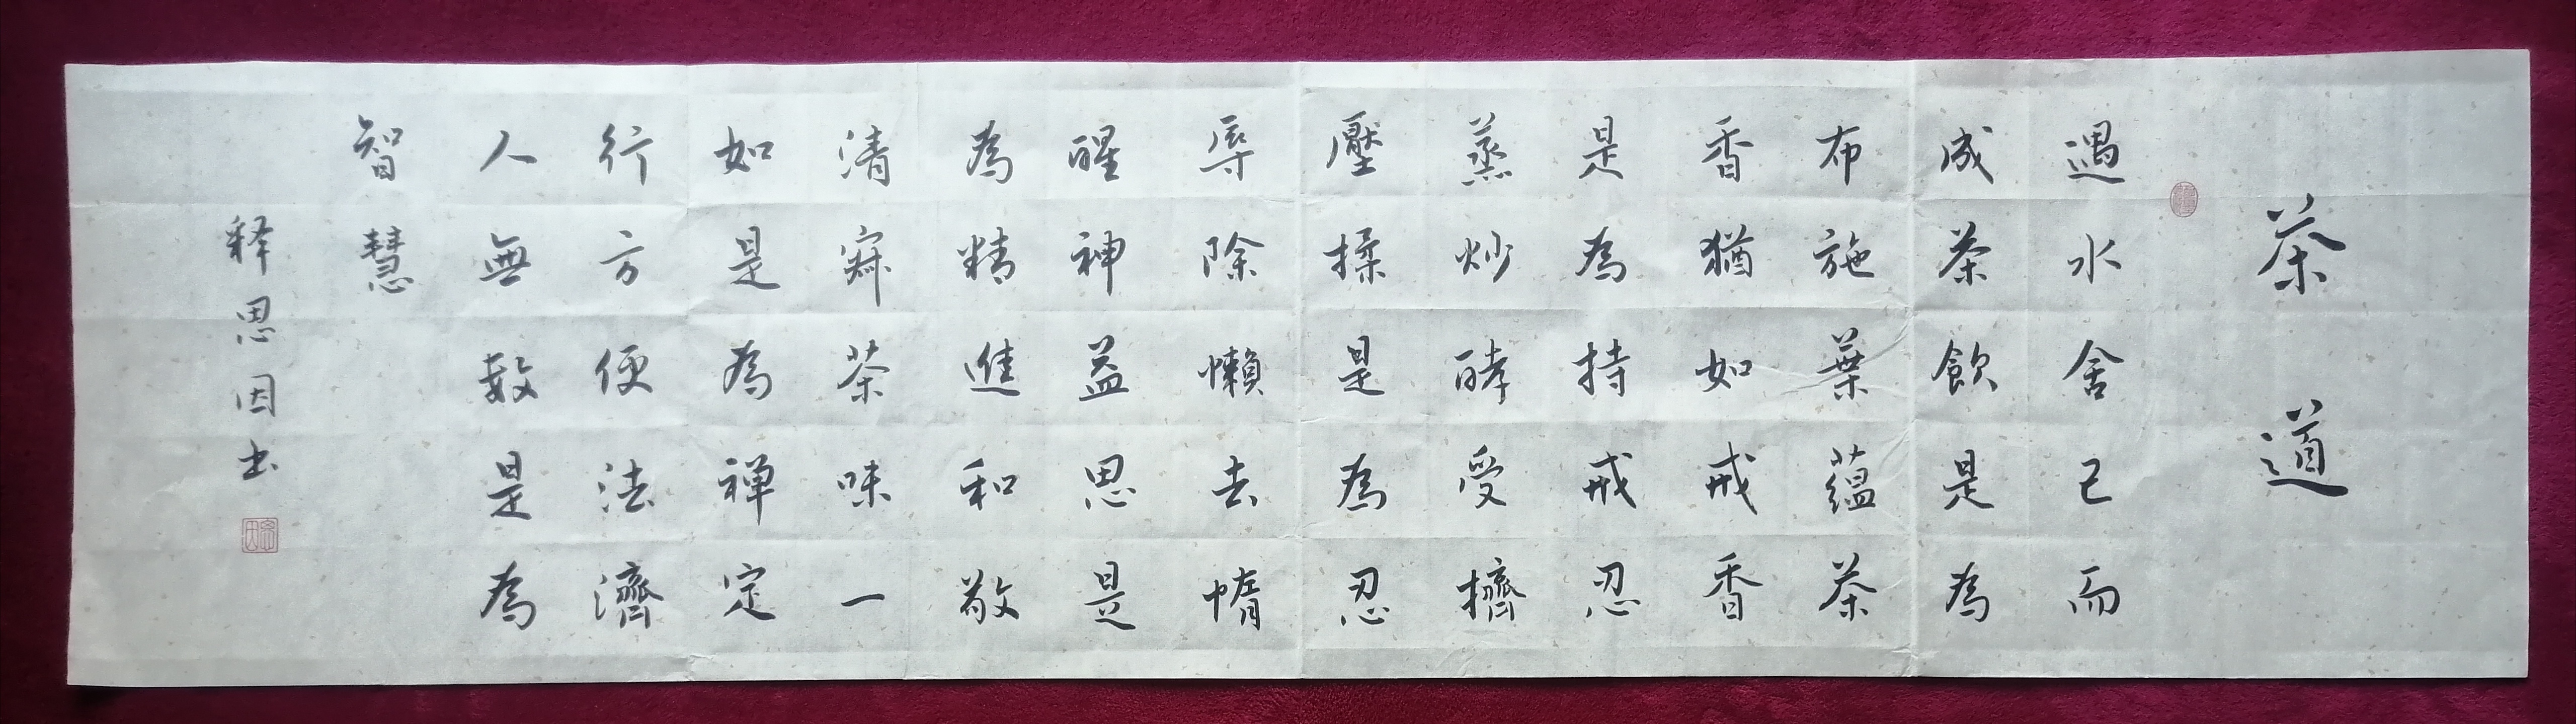 茶道
遇水舍己而
成茶飲是為
布施葉蘊茶
香猶如戒香
是為持戒忍
蒸炒酵受擠
壓揉是為忍
辱除懶去惰
醒神益思是
為精進和敬
清寂茶味一
如是為禅定
行方便法濟
人無数是為
智慧
释思因书
思因